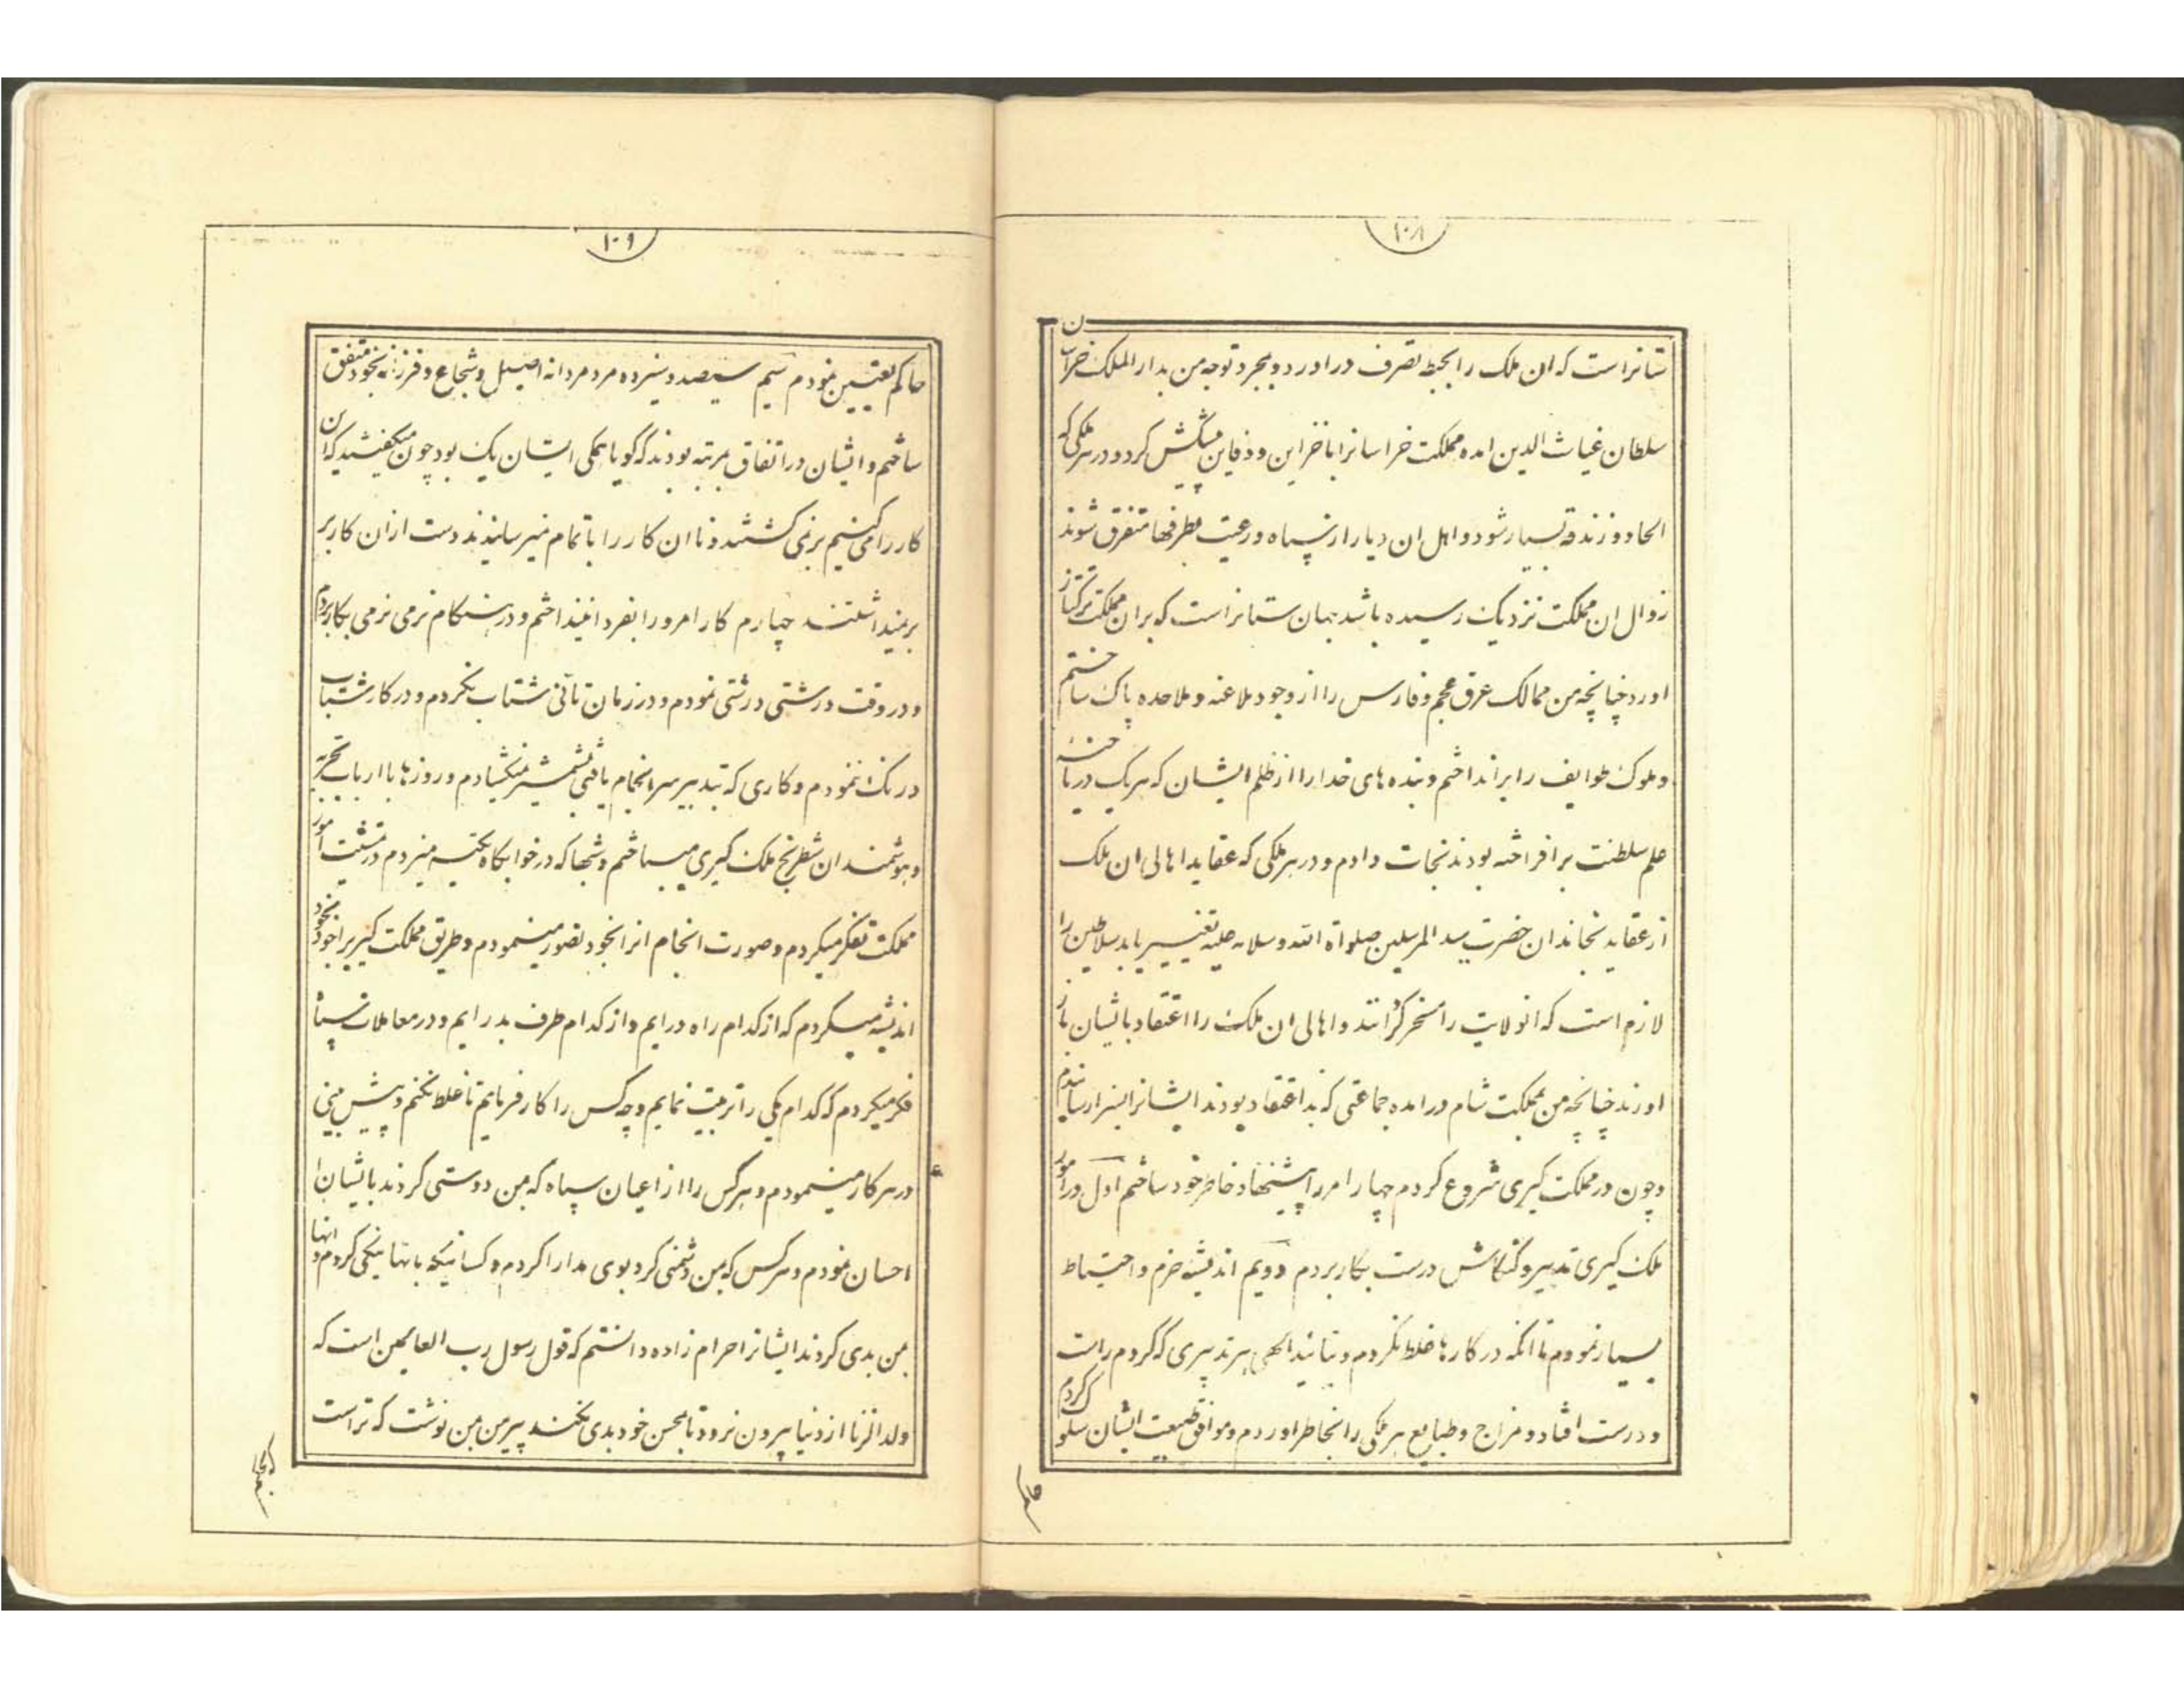 ۱۰۸
ستانراست که ان ملک را بحیطه تصرف در اورد و بمجرد توجه من بدار الملک خراسان
سلطان غیاث الدین امده مملکت خراسانرا با خزاین و دفاین پیشکش کرد و در هر ملکی که
الحاد و زندقه بسیار شود و اهل ان دیار از سپاه و رعیت بطرفها متفرق شوند
زوال ان مملکت نزدیک رسیده باشد جهان ستانراست که بران مملکت ترکتاز
اورد چنانچه من ممالک عرق عجم و فارس را از وجود ملاعنه و ملاحده پاک ساختم
و ملوک طوایف را برانداختم و بنده های خدا را از ظلم ایشان که هریک در ناحیه
علم سلطنت بر افراخته بودند نجات دادم و در هر ملکی که عقاید اهالی ان ملک
از عقاید خاندان حضرت سید المرسلین صلواة الله و سلامه علیه تغییر یابد سلاطین را
لازم است که انولایت را مسخر گردانند و اهالی ان ملک را اعتقاد بایشان باز
اورند چنانچه من بمملکت شام در امده جماعتی که بد اعتقاد بودند ایشانرا بسزا رسانیدم
و چون در مملکت گیری شروع کردم چهار امر را پیشنهاد خاطر خود ساختم اول در امور
ملک گیری تدبیر و کنکاش درست بکار بردم دویم اندیشه حزم و احتیاط
بسیار نمودم تا انکه در کارها غلط نکردم و بتائید الهی هر تدبیری که کردم راست
و درست افتاد و مزاج و طبایع هر ملکی را بخاطر اوردم و موافق طبیعت ایشان سلوک کردم
حاکم
۱۰۹
حاکم تعیین نمودم سیم سیصد و سیزده مرد مردانه اصیل و شجاع و فرزانه بخود متفق
ساختم و ایشان در اتفاق بمرتبه بودند که گویا همگی ایشان یک بود چون میگفتند که ان
کار را می کنیم برنمی گشتند و تا ان کار را با تمام نمیرسانیدند دست از ان کار بر
برنمیداشتند چهارم کار امروز را بفردا نینداختم و در هنگام نرمی نرمی بکار بردم
و در وقت درشتی درشتی نمودم و در زمان تأنی شتاب نکردم و در کار شتاب
درنگ ننمودم و کاری که بتدبیر سرانجام یافتی بشمشیر نمیکشادم و روزها با ارباب تجربه
و هوشمندان شطرنج ملک گیری میباختم و شبها که در خوابگاه تکیه میزدم در مشیت امور
مملکت تفکر میکردم و صورت انجام انرا بخود تصور مینمودم و طریق مملکت گیری را بخود
اندیشه میکردم که از کدام راه درایم و از کدام طرف بدر ایم و در معاملات سپاه
فکر میکردم که کدام یکی را تربیت نمایم و چه کس را کار فرمایم تا غلط نکنم و پیش بینی
در هر کار مینمودم و هر کس را از اعیان سپاه که بمن دوستی کردند بایشان
احسان نمودم و هر کس که بمن دشمنی کرد بوی مدارا کردم و کسانیکه بانها نیکی کردم و انها
بمن بدی کردند ایشانرا حرام زاده دانستم که قول رسول رب العالمین است که
ولد الزنا از دنیا بیرون نرود تا بمحسن خود بدی نکند پیر من بمن نوشت که تراست